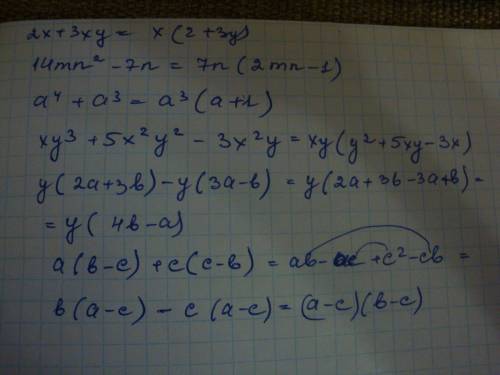 2x+3xy = x(2+3y)
14mn² -7n = 7n(2mn-1)
a⁴ + a³ = a³(a+1)
xy³ +5x²y² - 3x²y = xy(y²+5xy-3x)
y(2a+3b)-y(3a-b) = y(2a+3b-3a+b) =
= y(4b-a)
a(b-c)+c(c-b) = ab-ac+c²-cb =
b(a-c) - c(a-c) = (a-c)(b-c)